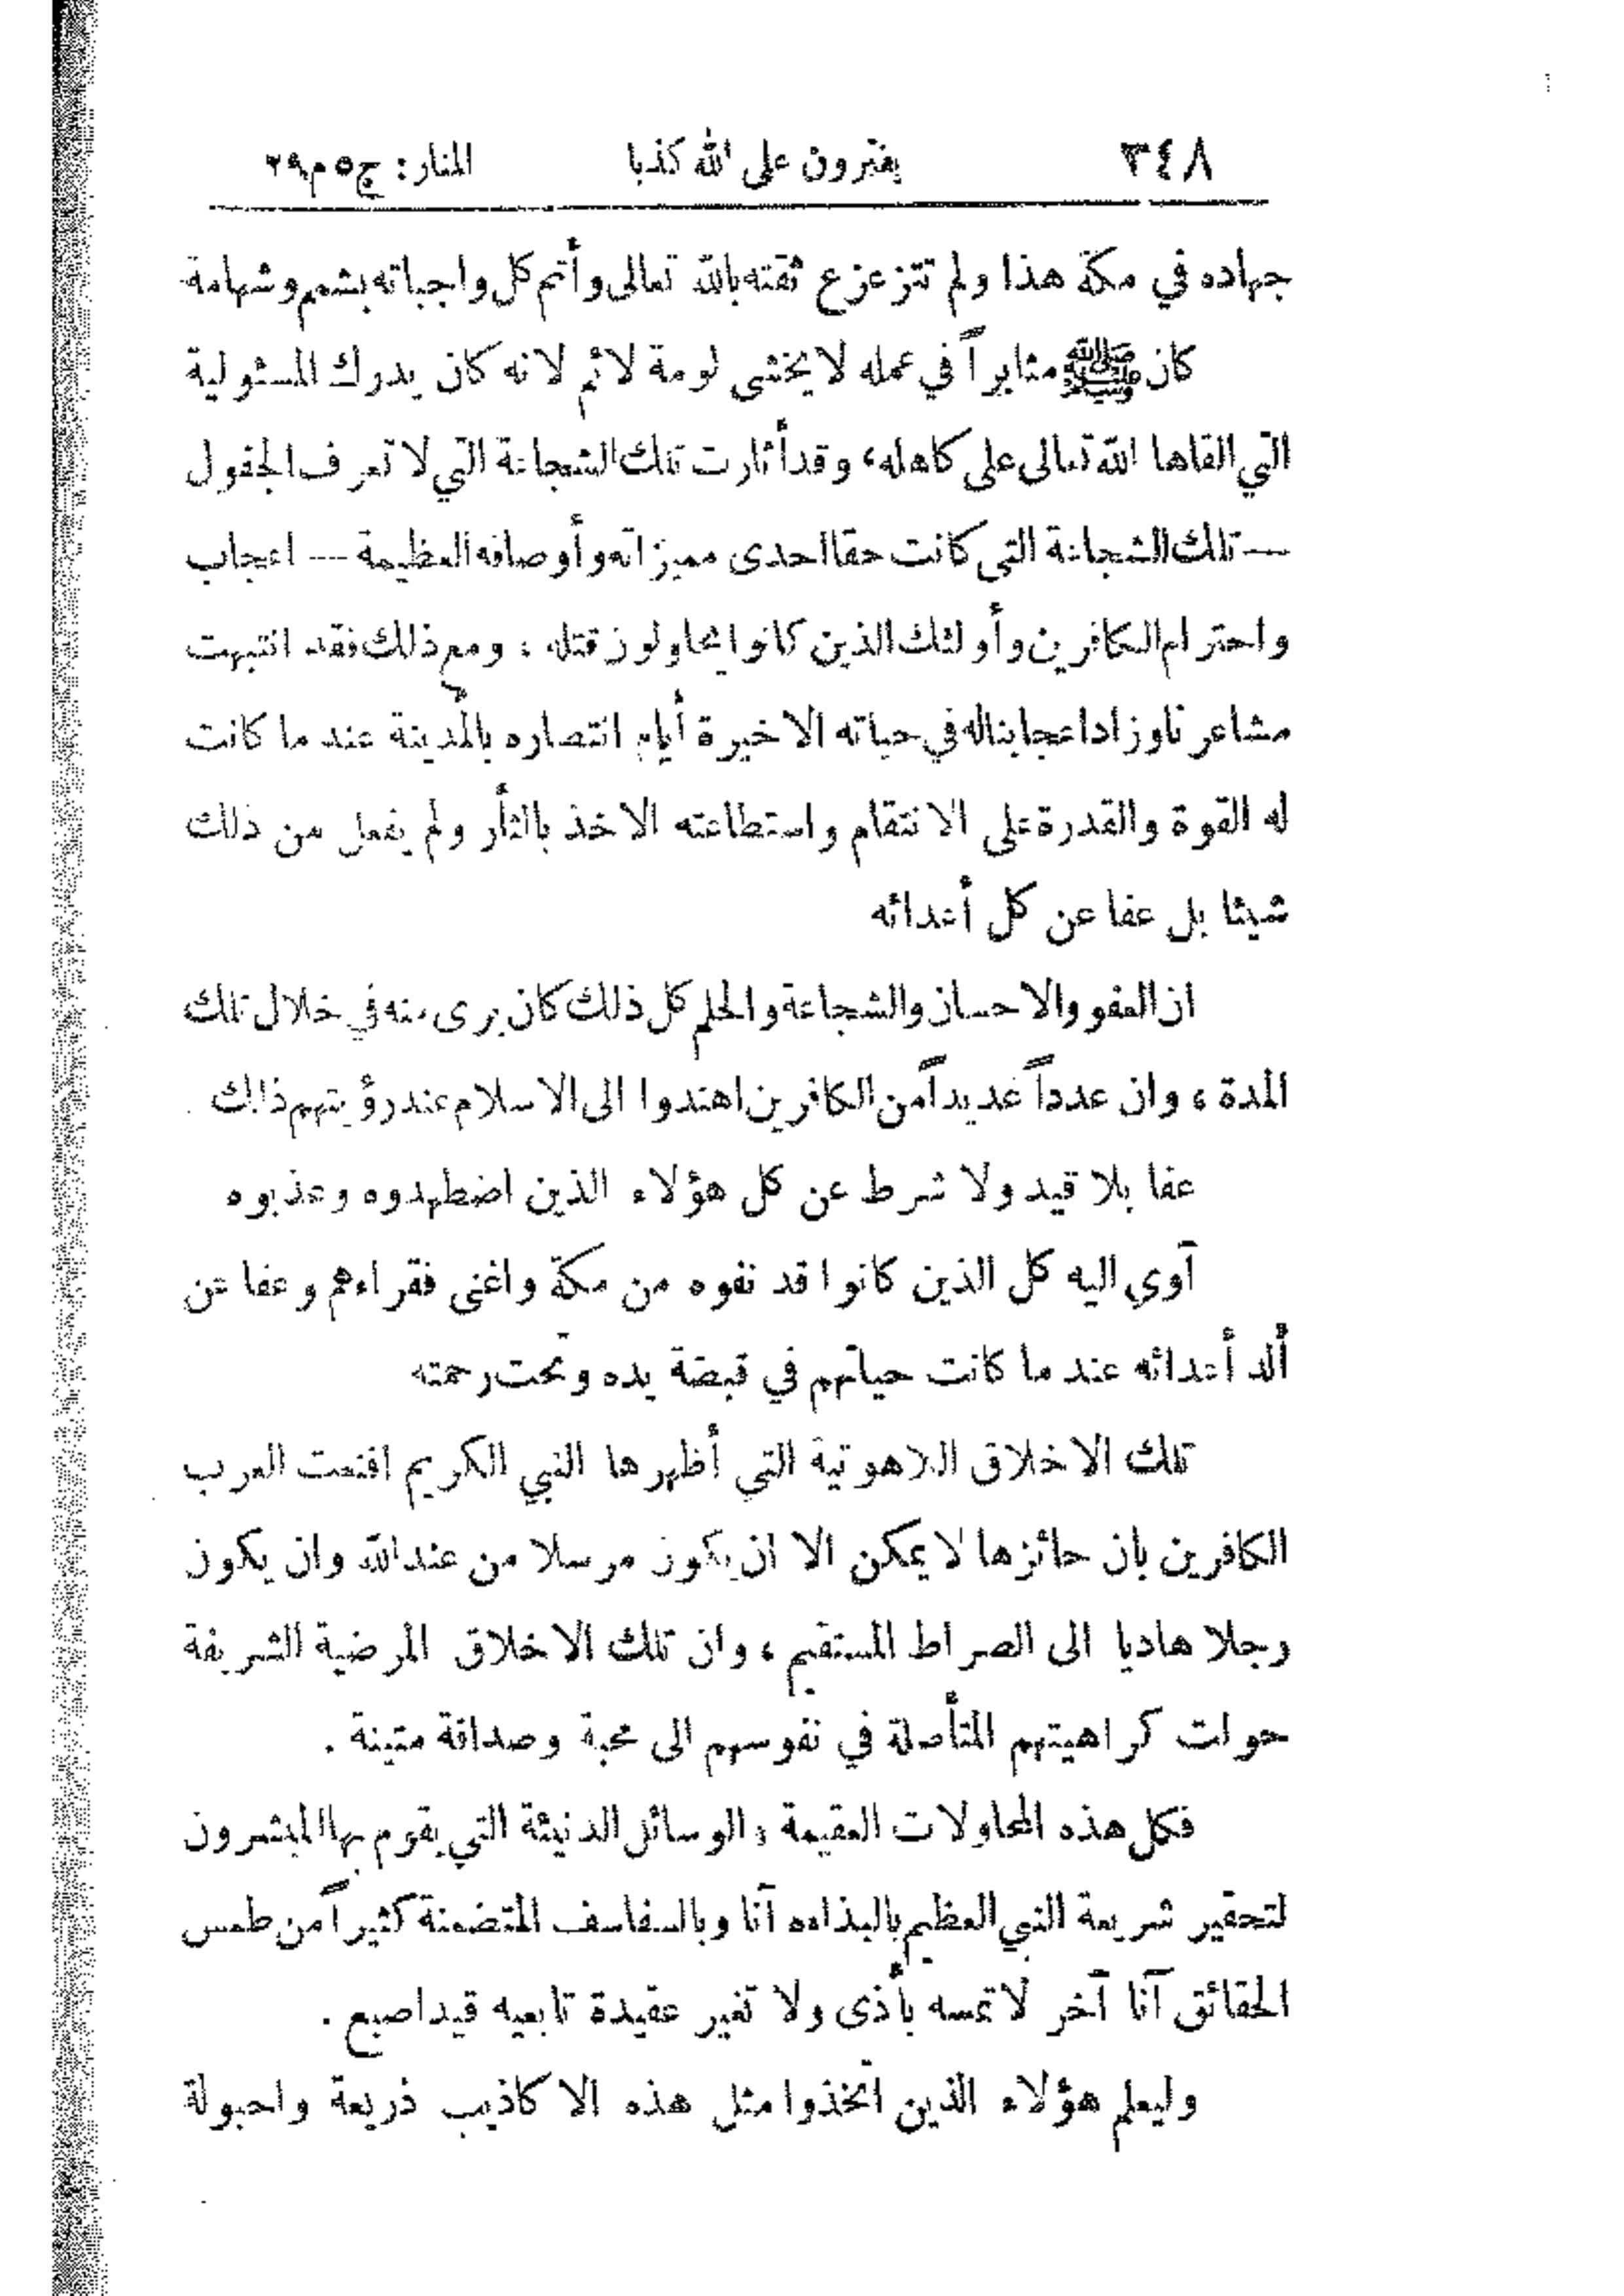 ٣٤٨ يفترون على الله كذبا المنار: ج٥ م٢٩
جهاده في مكة هذا ولم تتزعزع ثقته بالله تعالى وأتم كل واجباته بشمم وشهامة
كان ﷺ مثابراً في عمله لا يخشى لومة لائم لانه كان يدرك المسئولية
التي القاها الله تعالى على كاهله، وقد أثارت تلك الشجاعة التي لا تعرف الجفول
— تلك الشجاعة التي كانت حقا احدى مميزاته وأوصافه العظيمة — اعجاب
واحترام الكافرين وأولئك الذين كانوا يحاولون قتله، ومع ذلك فقد انتبهت
مشاعرنا وزاد اعجابنا له في حياته الاخيرة أيام انتصاره بالمدينة عند ما كانت
له القوة والقدرة على الانتقام واستطاعته الاخذ بالثأر ولم يفعل من ذلك
شيئا بل عفا عن كل أعدائه
ان العفو والاحسان والشجاعة والحلم كل ذلك كان يرى منه في خلال تلك
المدة، وان عدداً عديداً من الكافرين اهتدوا الى الاسلام عند رؤيتهم ذلك
عفا بلا قيد ولا شرط عن كل هؤلاء الذين اضطهدوه وعذبوه
آوى اليه كل الذين كانوا قد نفوه من مكة واغنى فقراءهم وعفا عن
ألد أعدائه عند ما كانت حياتهم في قبضة يده وتحت رحمته
تلك الاخلاق اللاهوتية التي أظهرها النبي الكريم اقنعت العرب
الكافرين بان حائزها لا يمكن الا ان يكون مرسلا من عند الله وان يكون
رجلا هاديا الى الصراط المستقيم، وان تلك الاخلاق المرضية الشريفة
حولت كراهيتهم المتأصلة في نفوسهم الى محبة وصداقة متينة .
فكل هذه المحاولات العقيمة والوسائل الدنيئة التي يقوم بها المبشرون
لتحقير شريعة النبي العظيم بالبذاءه آنا وبالسفاسف المتضمنة كثيراً من طمس
الحقائق آنا آخر لا تمسه بأذى ولا تغير عقيدة تابعيه قيد اصبع .
وليعلم هؤلاء الذين اتخذوا مثل هذه الاكاذيب ذريعة واحبولة